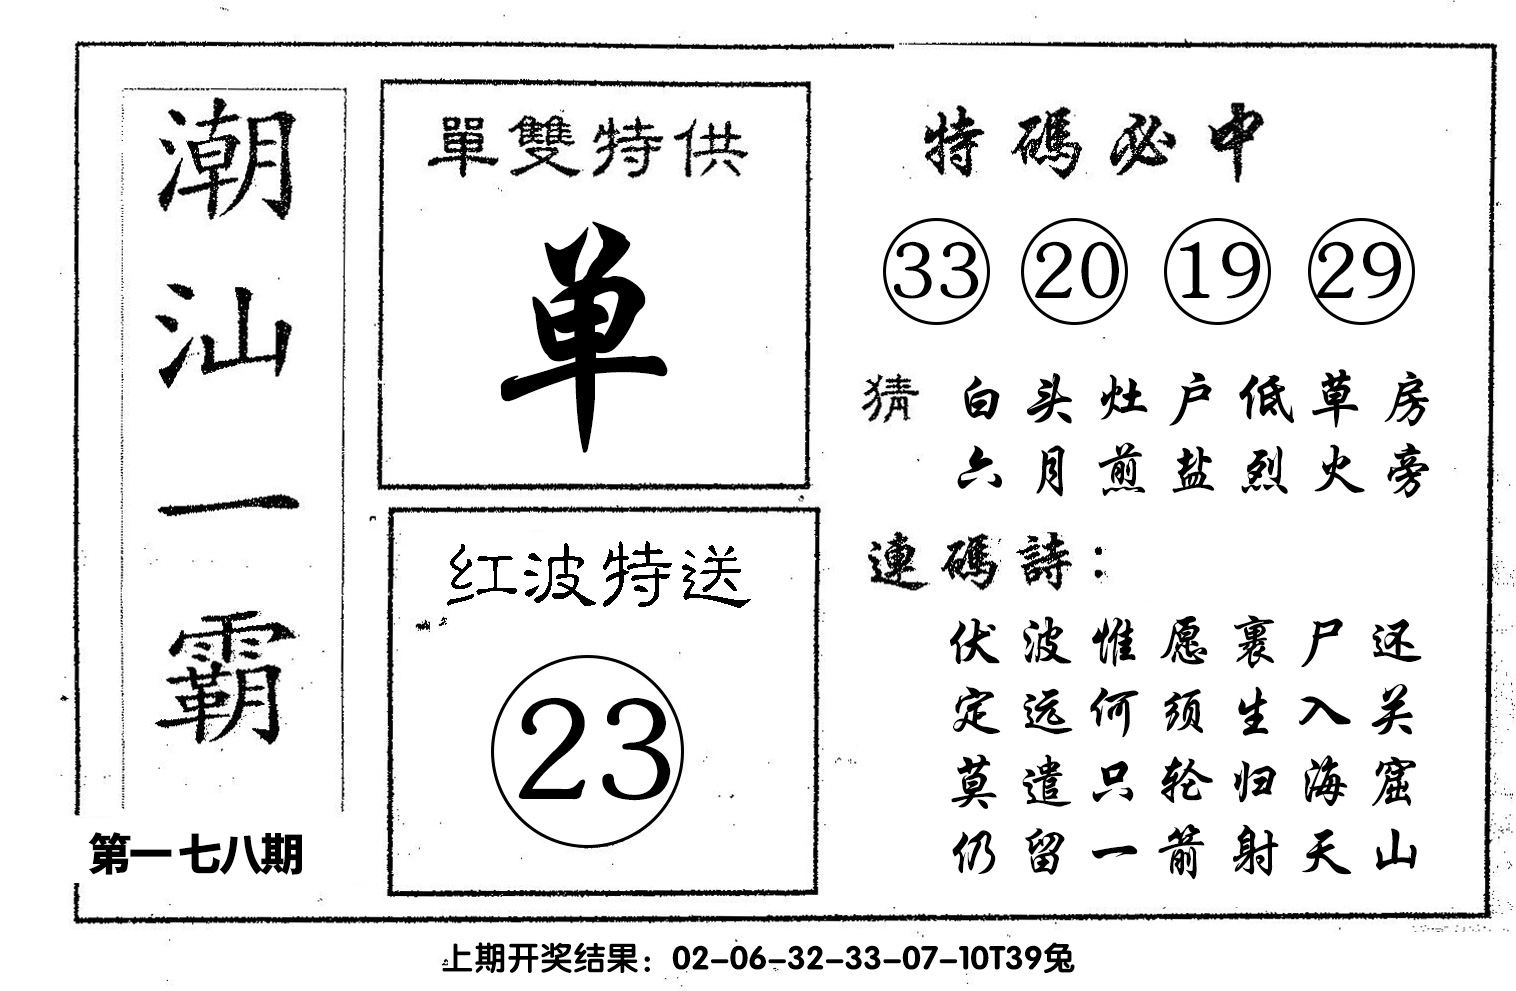 潮汕一霸
第一七八期
單雙特供
单
红波特送
23
特碼必中
33 20 19 29
猜 白头灶户低草房
六月煎盐烈火旁
連碼詩：
伏波惟愿裹尸还
定远何须生入关
莫遣只轮归海窟
仍留一箭射天山
上期开奖结果：02-06-32-33-07-10T39兔